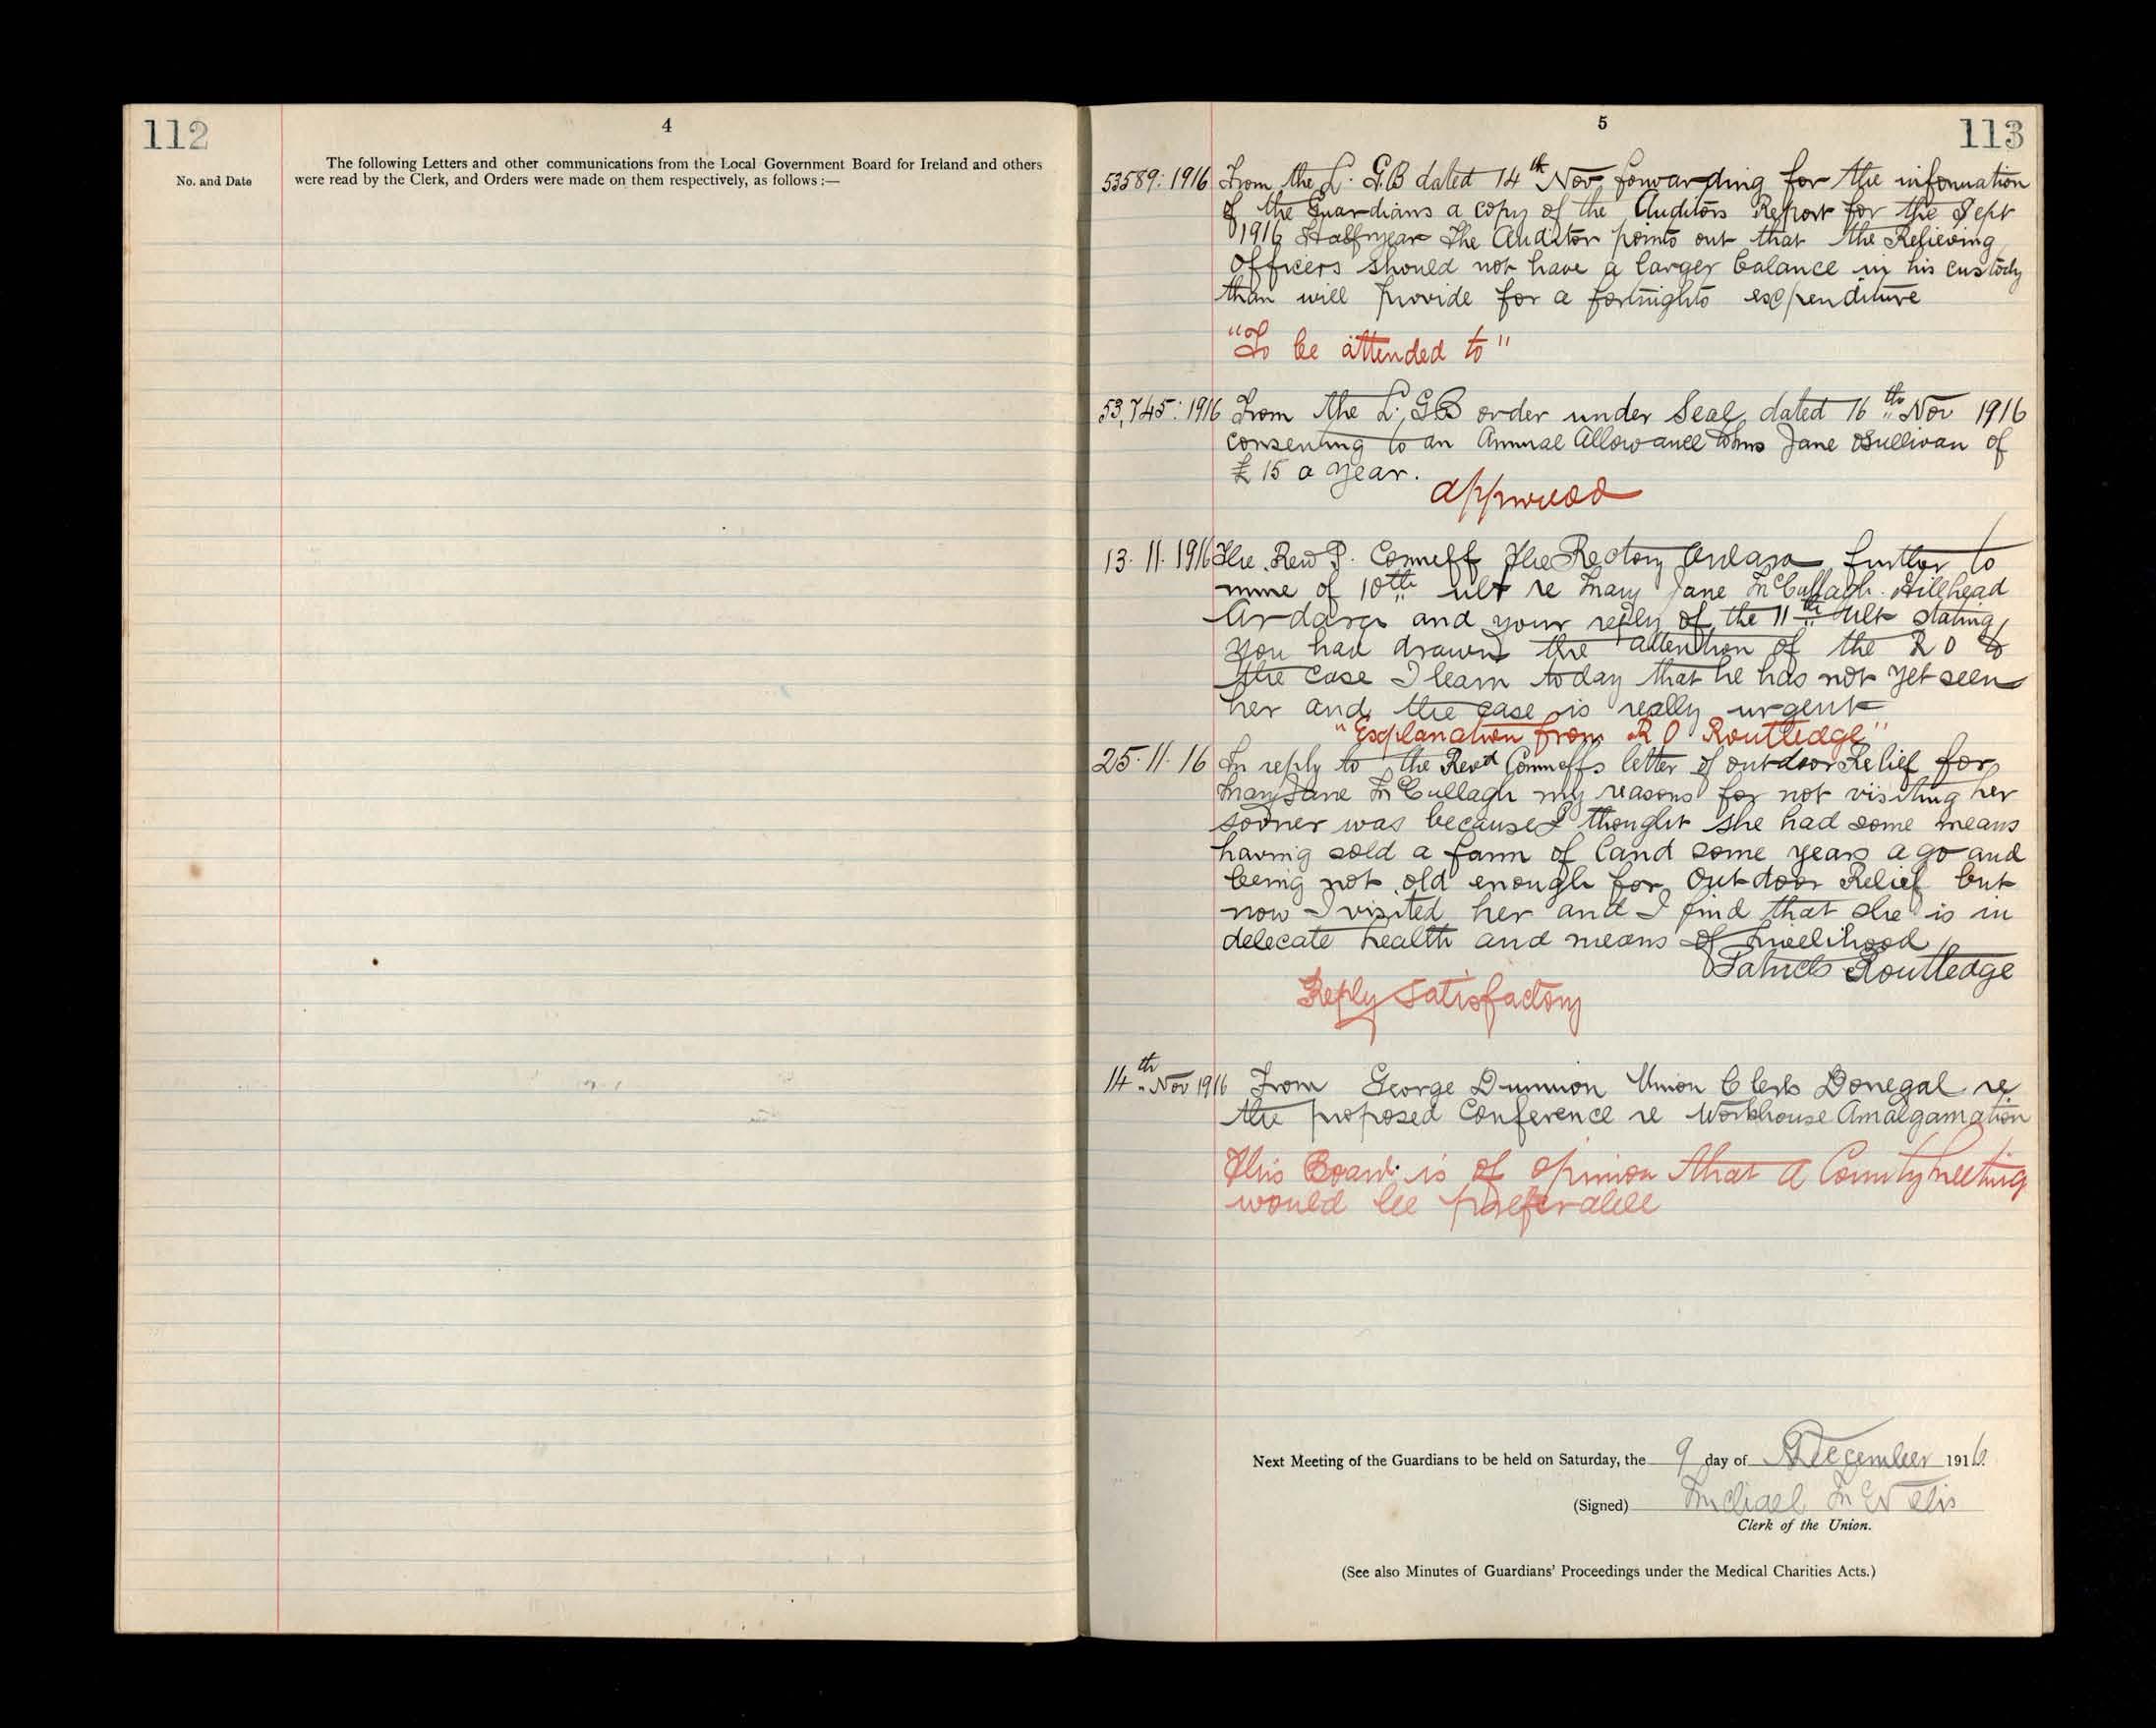 112
4
No. and Date
The following Letters and other communications from the Local Government Board for Ireland and others
were read by the Clerk, and Orders were made on them respectively, as follows :—
5
113
53589: 1916 From the L. G.B dated 14th Nov forwarding for the information
of the Guardians a copy of the Auditors Report for the Sept
1916 Halfyear The Auditor points out that the Relieving
Officers should not have a larger balance in his custody
than will provide for a fortnights expenditure
"To be attended to"
53,745: 1916 From the L. G B order under Seal dated 16th Nov 1916
consenting to an Annual Allowance Jane OSullivan of
£15 a year.
approved
13. 11. 1916 The Rev P. Conneff The Rectory Ardara further to
mine of 10th ult re Mary Jane McCullagh. Hillhead
Ardara and your reply of the 11th ult stating
you had drawn the attention of the R O to
the case I learn today that he has not yet seen
her and the case is really urgent
"Explanation from R O Routledge"
25. 11. 16 In reply to the Revd Conneffs letter of outdoor Relief for
Mary Jane McCullagh my reasons for not visiting her
sooner was because I thought she had some means
having sold a farm of land some years ago and
being not old enough for Outdoor Relief but
now I visited her and I find that she is in
delecate health and means of livelihood
Patrick Routledge
Reply satisfactory
14th Nov 1916 From George Dunnion Union Clerk Donegal re
the proposed Conference re Workhouse Amalgamation
This Board is of opinion that a County Meeting
would be preferable
Next Meeting of the Guardians to be held on Saturday, the 9 day of December 1916.
(Signed) Michael
Clerk of the Union.
(See also Minutes of Guardians' Proceedings under the Medical Charities Acts.)